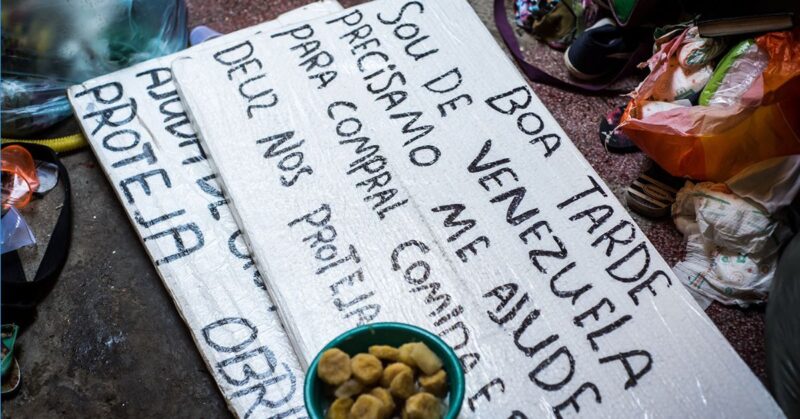 BOA TARDE
SOU DE VENEZUELA
PRECISAMO ME AJUDE
PARA COMPRAL COMIDA E
DEUZ NOS PROTEJA
AJUDA DE
PROTEJA OBRI